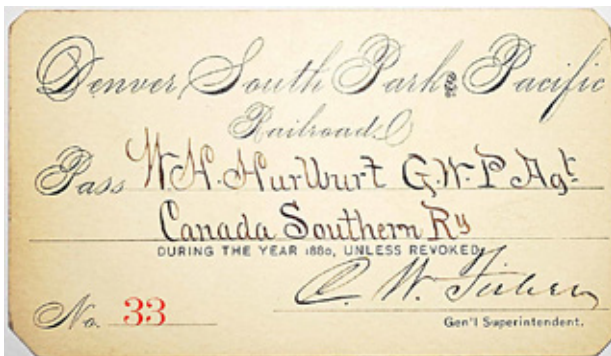 Denver, South Park & Pacific
Railroad.
Pass W. H. Hurlburt G. W. P. Agt
Canada Southern Ry
DURING THE YEAR 1880, UNLESS REVOKED.
C. W. Fisher
No. 33
Gen'l Superintendent.